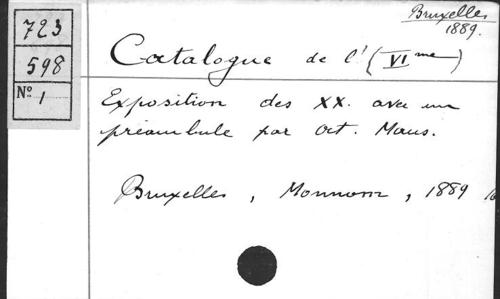 723
598
N° 1
Bruxelles
1889.
Catalogue de l' (VIme)
Exposition des XX. avec un
préambule par Oct. Maus.
Bruxelles, Monnom, 1889